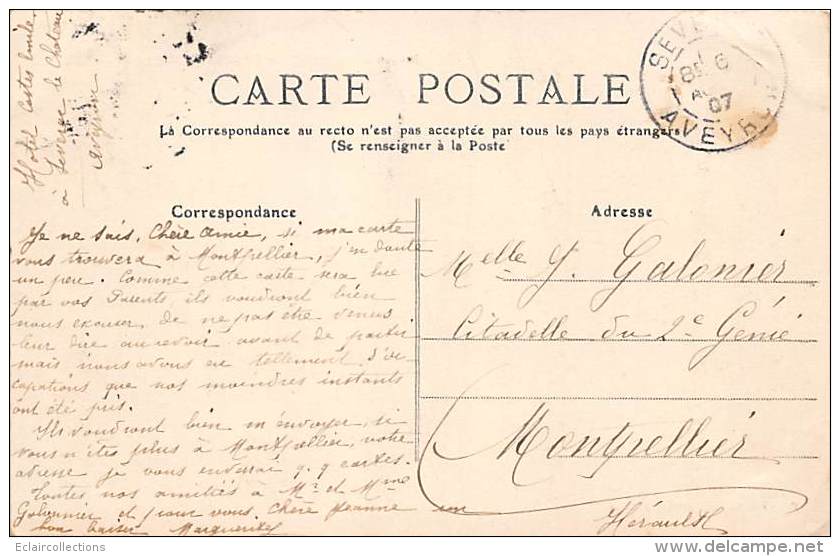 Hotel Castes Emile
à Séverac le Chateau
Aveyron
CARTE POSTALE
La Correspondance au recto n'est pas acceptée par tous les pays étrangers
(Se renseigner à la Poste
SEVE
6
07
AVEYRON
Correspondance
Adresse
Je ne sais, Chère Amie, si ma carte
vous trouvera à Montpellier, j'en doute
un peu. Comme cette carte sera lue
par vos Parents, ils voudront bien
nous excuser, de ne pas être venus
leur dire au revoir avant de partir
mais nous avons eu tellement d'oc
cupations que nos moindres instants
ont été pris.
Ils voudront bien m'envoyer, si
vous n'êtes plus à Montpellier, votre
adresse je vous enverrai q. q cartes.
Toutes nos amitiés à Mr et Mme
Galonnier et pour vous, Chère Jeanne un
bon baiser Marguerite
Melle J. Galonier
Citadelle du 2e Génie
Montpellier
Hérault
Eclaircollections
delcampe.net